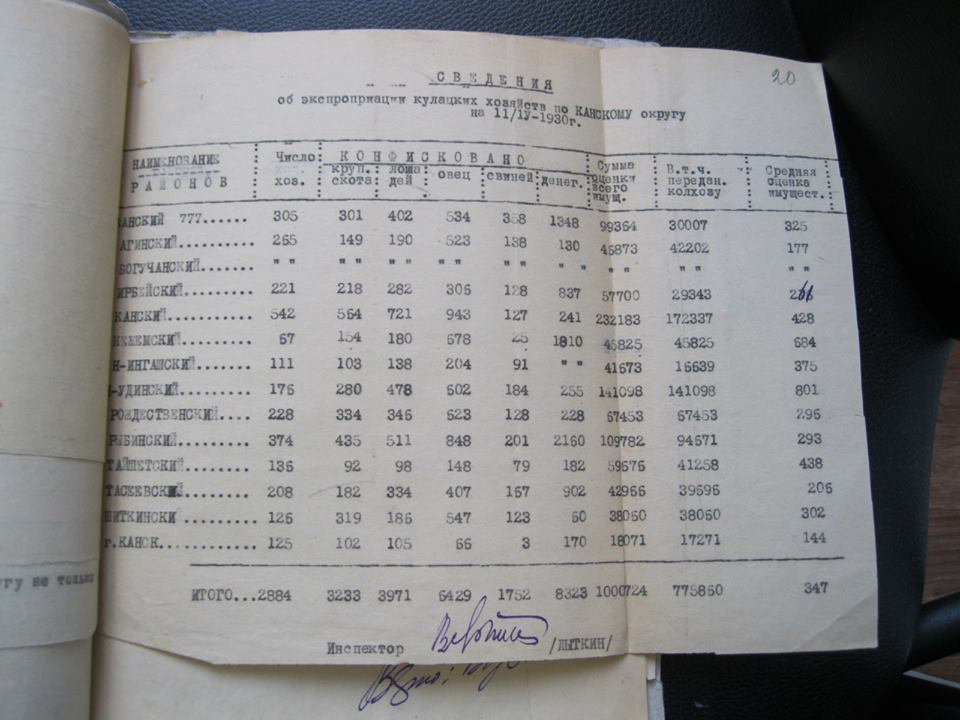 20
СВЕДЕНИЯ
об экспроприации кулацких хозяйств по КАНСКОМУ округу
на 11/IУ-1930г.
НАИМЕНОВАНИЕ РАЙОНОВ : Число хоз. : КОНФИСКОВАНО : Сумма оценки всего имущ. : В.т.ч. передан. колхозу : Средняя оценка имущест.
круп. скота : лоша дей : овец : свиней : денег.
АНСКИЙ 777...... 305 301 402 534 358 1348 99364 30007 325
АГИНСКИЙ.......... 265 149 190 523 138 130 46873 42202 177
БОГУЧАНСКИЙ....... " " " " " " " " " " " " " " " " " "
ИРБЕЙСКИЙ......... 221 218 282 306 128 837 57700 29343 266
КАНСКИЙ........... 542 564 721 943 127 241 232183 172337 428
КЕЖЕМСКИЙ......... 67 154 180 678 25 1810 45825 45825 684
Н-ИНГАШСКИЙ....... 111 103 138 204 91 " " 41673 16639 375
-УДИНСКИЙ........ 176 280 478 602 184 255 141098 141098 801
РОЖДЕСТВЕНСКИЙ.... 228 334 346 623 128 228 67453 67453 296
РЫБИНСКИЙ......... 374 435 511 848 201 2160 109782 94671 293
ТАЙШЕТСКИЙ........ 136 92 98 148 79 182 59676 41258 438
ТАСЕЕВСКИЙ........ 208 182 334 407 167 902 42966 39696 206
ШИТКИНСКИ ......... 126 319 186 547 123 60 38060 38060 302
г.КАНСК............ 125 102 105 66 3 170 18071 17271 144
ИТОГО...2884 3233 3971 6429 1752 8323 1000724 775860 347
угу не только
Инспектор /ЛЫТКИН/